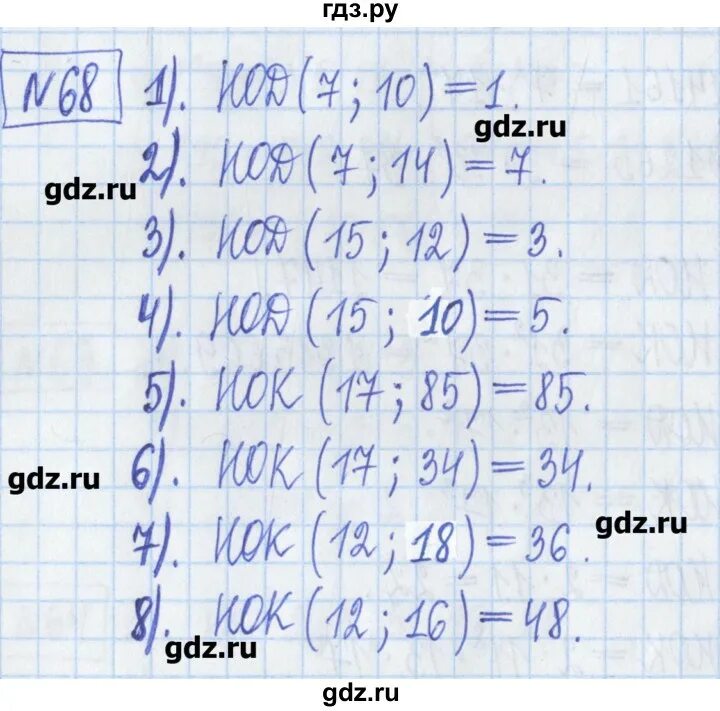 гдз.ру
№68 1). НОД(7; 10) = 1.
gdz.ru
2). НОД(7; 14) = 7.
gdz.ru
3). НОД(15; 12) = 3.
4). НОД(15; 10) = 5.
5). НОК(17; 85) = 85.
6). НОК(17; 34) = 34.
gdz.ru
7). НОК(12; 18) = 36.
gdz.ru
8). НОК(12; 16) = 48.
gdz.ru
gdz.ru